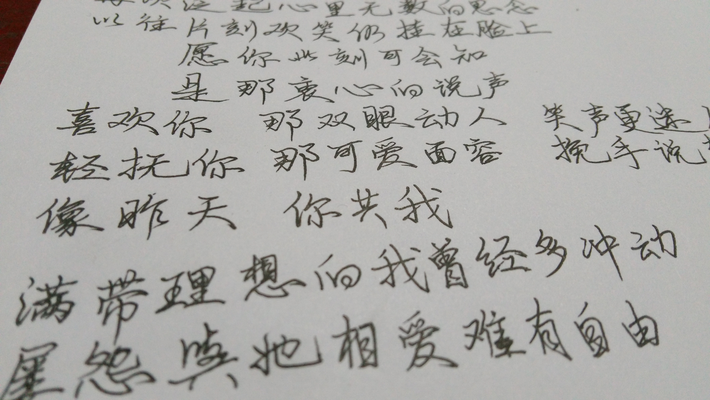 次泛起心里无数的思念
以往片刻欢笑仍挂在脸上
愿你此刻可会知
是那衷心的说声
喜欢你 那双眼动人 笑声更迷
轻抚你 那可爱面容 挽手说
像昨天 你共我
满带理想的我曾经多冲动
屡怨與她相爱难有自由